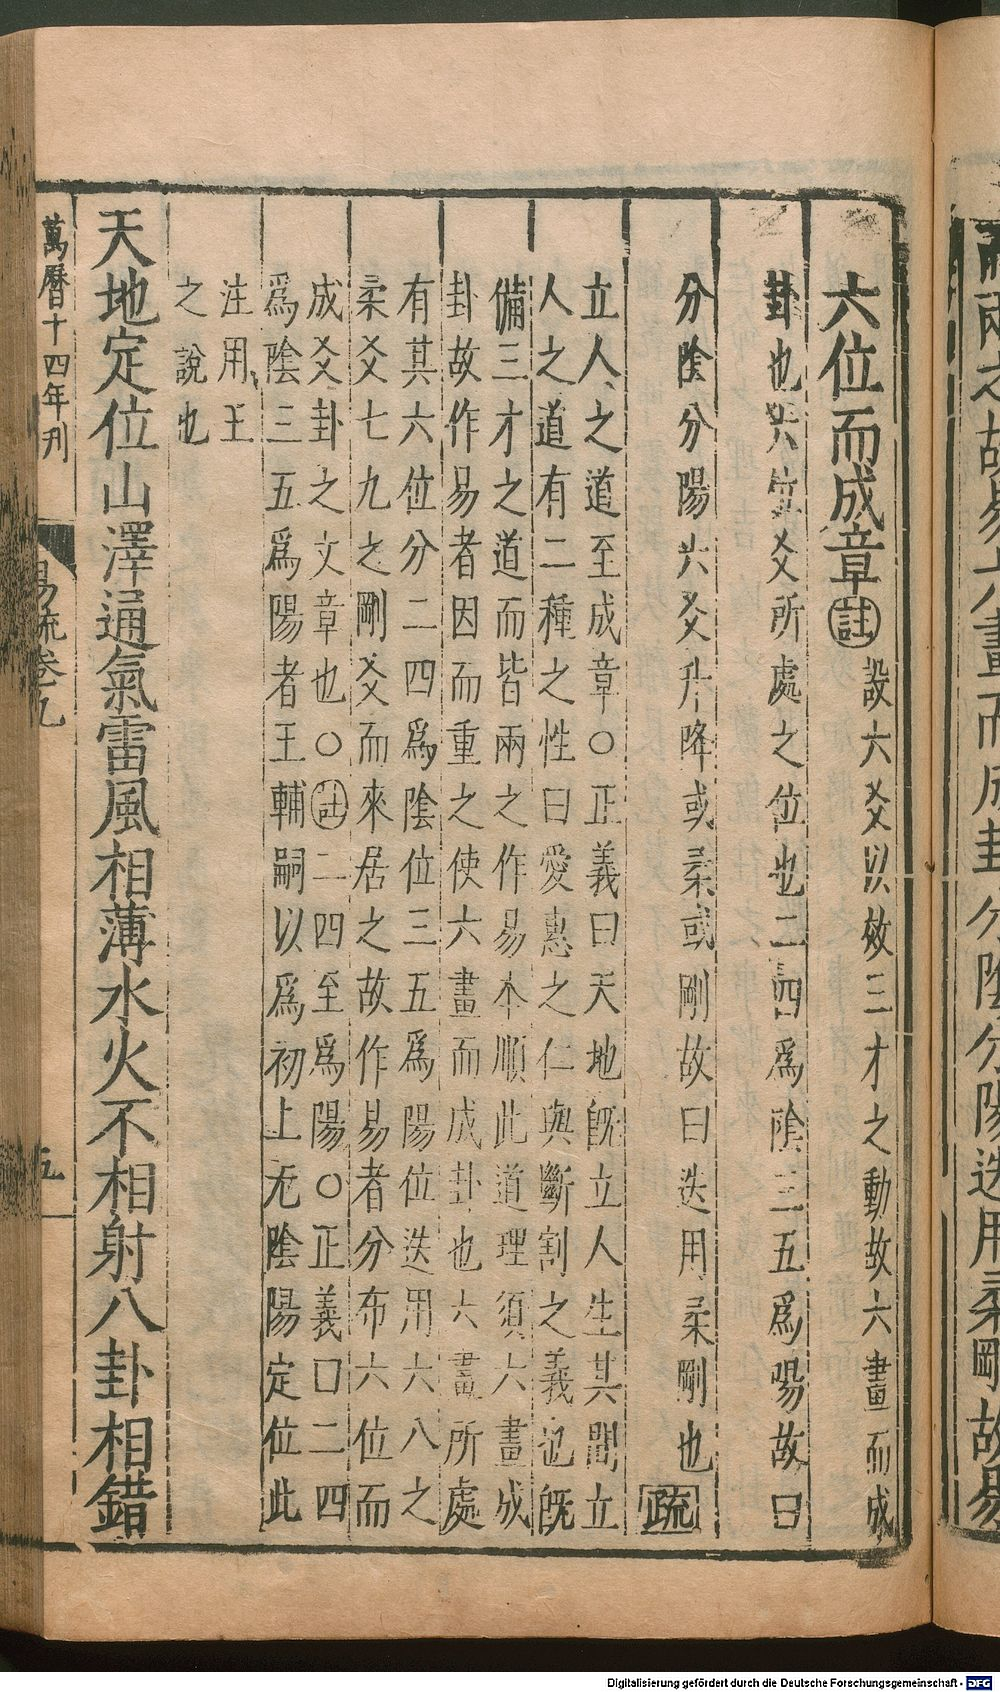 六位而成章註設六爻以效三才之動故六畫而成
卦也六位爻所處之位也二四爲陰三五爲陽故曰
分陰分陽六爻升降或柔或剛故曰迭用柔剛也疏
立人之道至成章○正義曰天地旣立人生其間立
人之道有二種之性曰愛惠之仁與斷割之義也旣
備三才之道而皆兩之作易本順此道理須六畫成
卦故作易者因而重之使六畫而成卦也六畫所處
有其六位分二四爲陰位三五爲陽位迭用六八之
柔爻七九之剛爻而來居之故作易者分布六位而
成爻卦之文章也○註二四至爲陽○正義曰二四
爲陰三五爲陽者王輔嗣以爲初上无陰陽定位此
注用王
之說也
天地定位山澤通氣雷風相薄水火不相射八卦相錯
萬曆十四年刋
易疏卷九
五
兩之故易六畫而成卦分陰分陽迭用柔剛故易
Digitalisierung gefördert durch die Deutsche Forschungsgemeinschaft - DFG